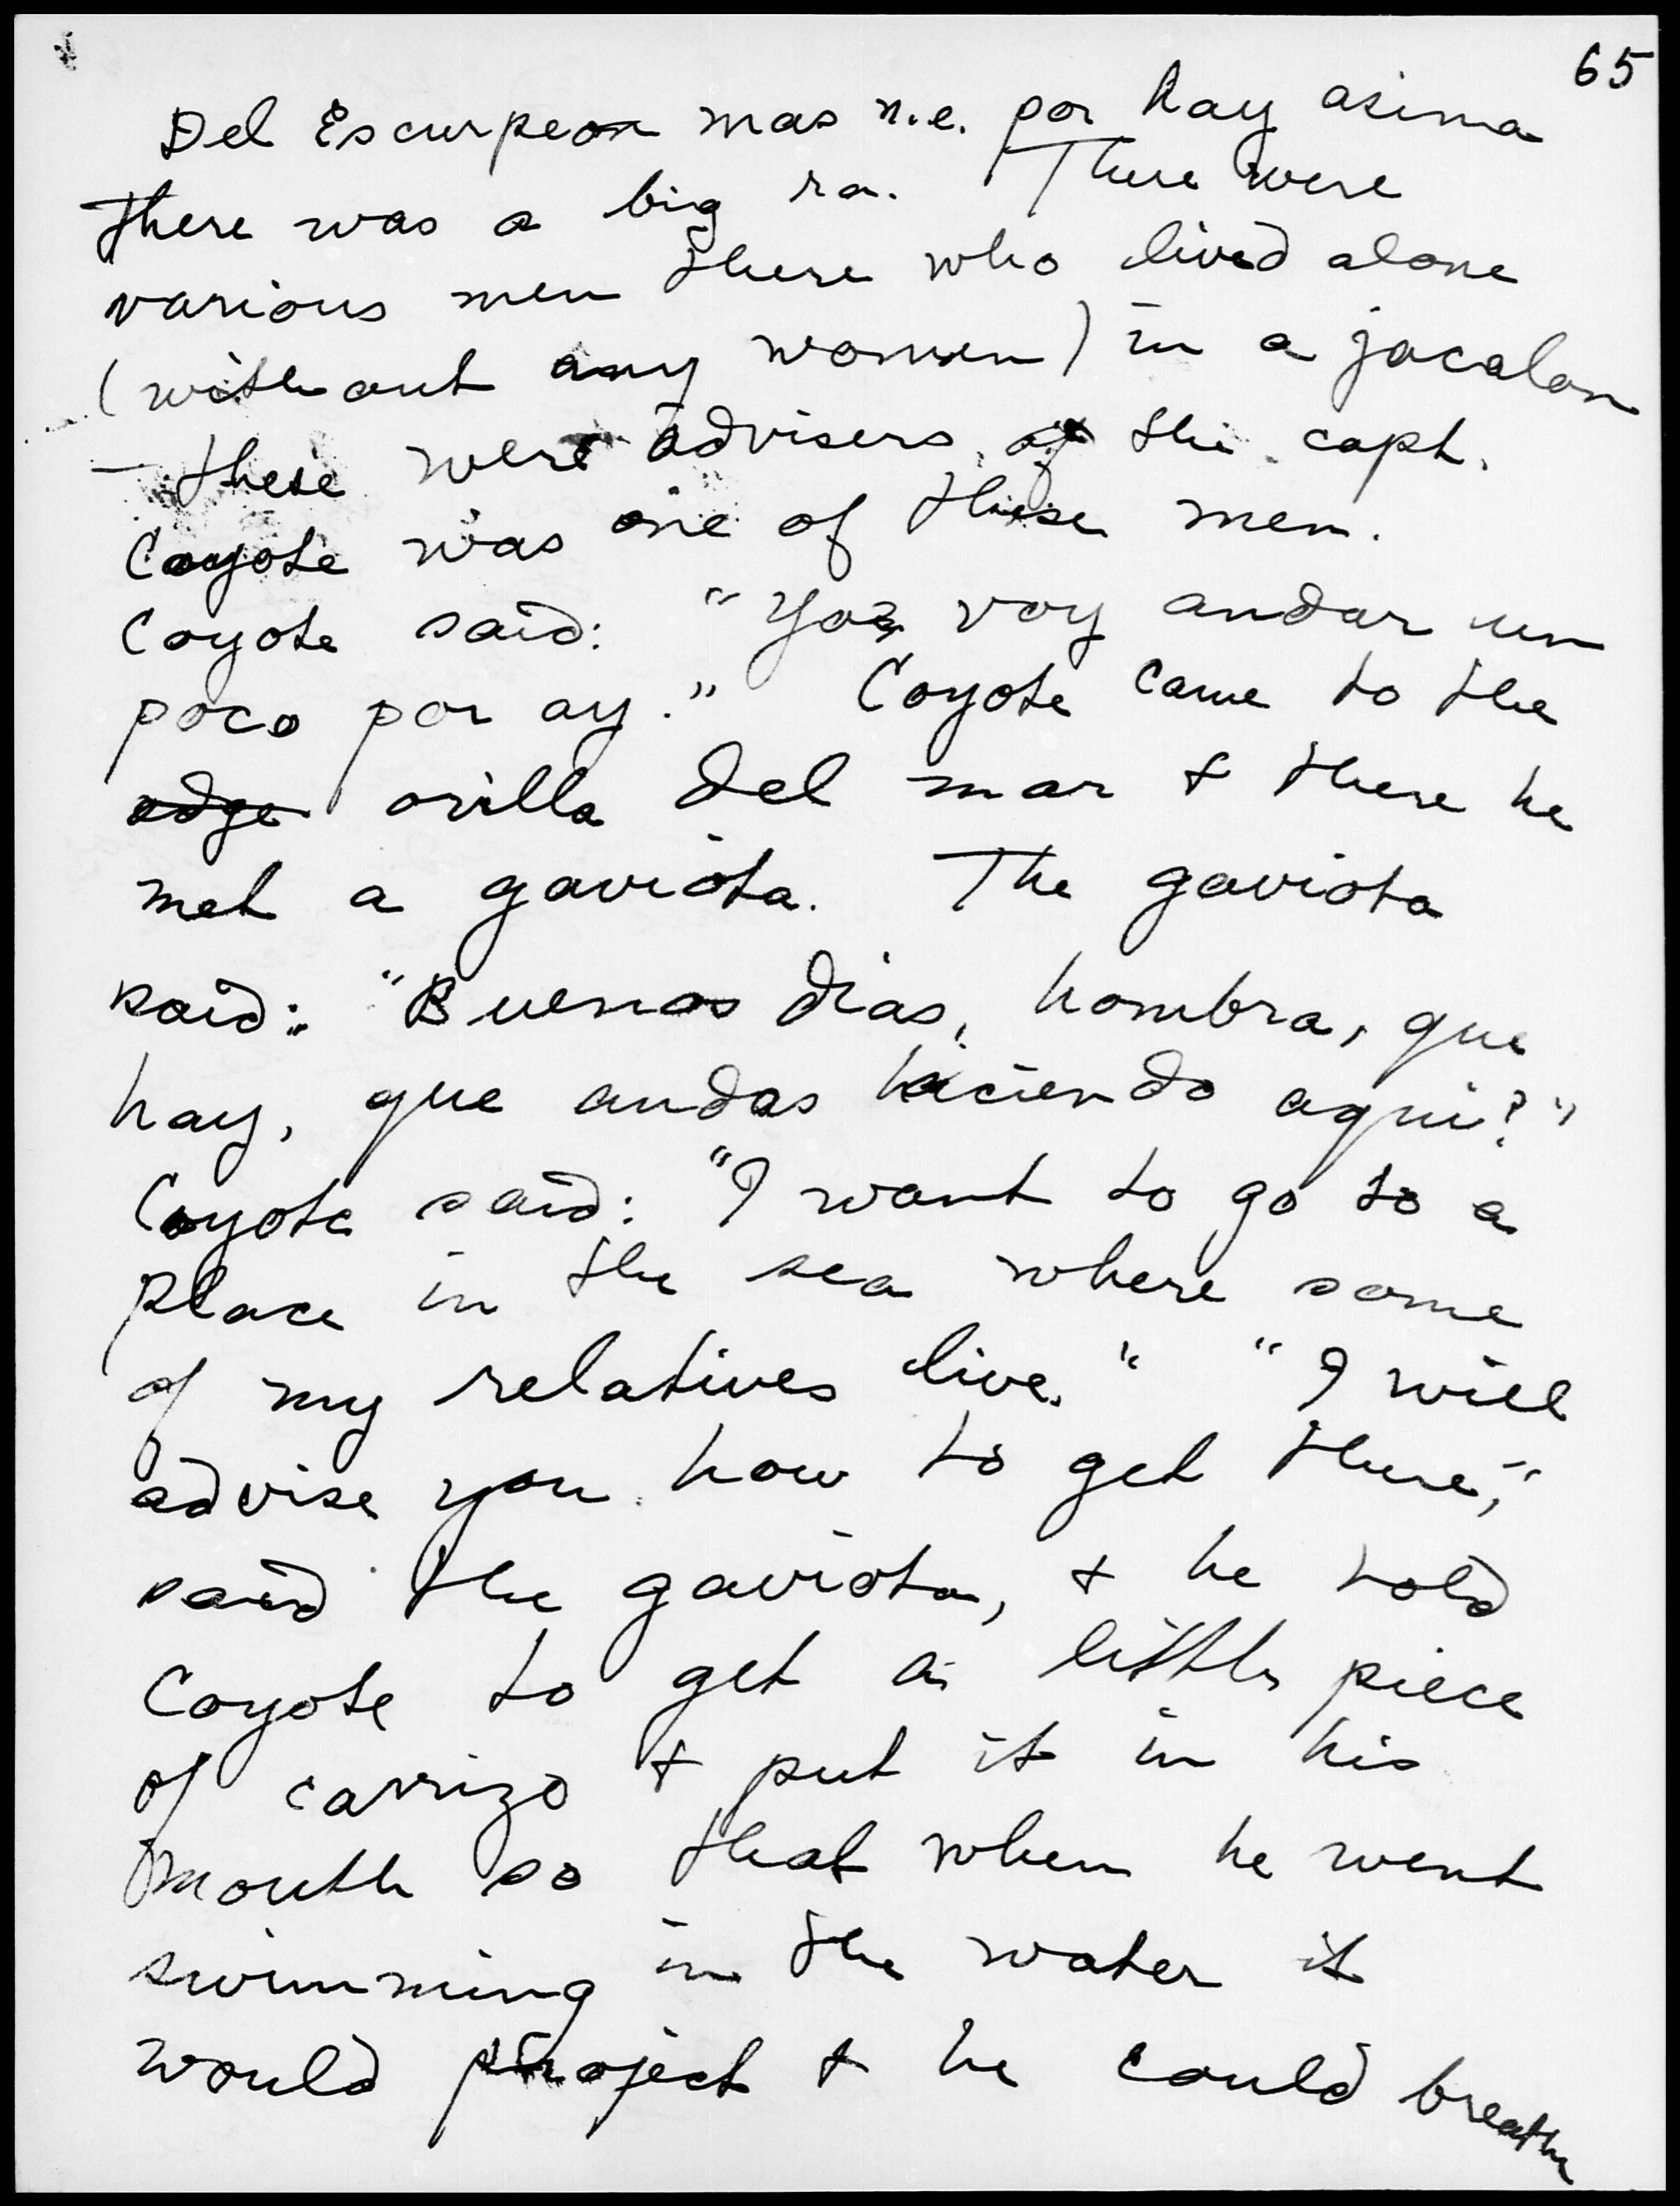 65
Del Escurpeon mas n.e. por hay asima
there was a big ra. There were
various men there who lived alone
(without any women) in a jacalon
— these were advisers of the capt.
Coyote was one of these men.
Coyote said: "Yo voy andar un
poco por ay." Coyote came to the
edge orilla del mar + there he
met a gaviota. The gaviota
said: "Buenos dias, hombra, que
hay, que andas haciendo aqui?"
Coyote said: "I want to go to a
place in the sea where some
of my relatives live." "I will
advise you how to get there,"
said the gaviota, + he told
Coyote to get a little piece
of carrizo + put it in his
mouth so that when he went
swimming in the water it
would project + he could breathe